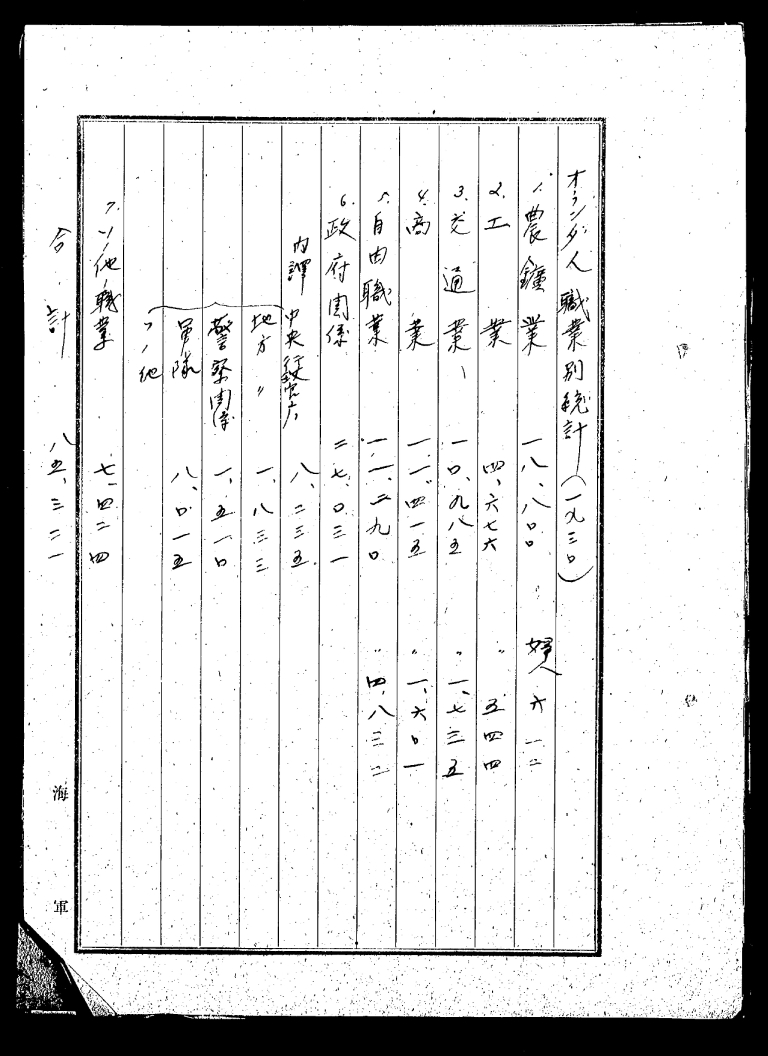 オランダ人職業別統計(一九三〇)
1. 農鑛業 一八、八〇〇 婦人 六一二
2. 工業 四、六七六 〃 五四四
3. 交通業 一〇、九八五 〃 一、七三五
4. 商業 一一、四一五 〃 一、六〇一
5. 自由職業 一一、二九〇 〃 四、八三二
6. 政府関係 二七、〇三一
内譯 中央行政官庁 八、二三五
地方 〃 一、八三三
警察関係 一、五一〇
軍隊 八、〇一五
ソノ他
7. ソノ他ノ職業 七、四二四
合計 八五、三二一
海軍